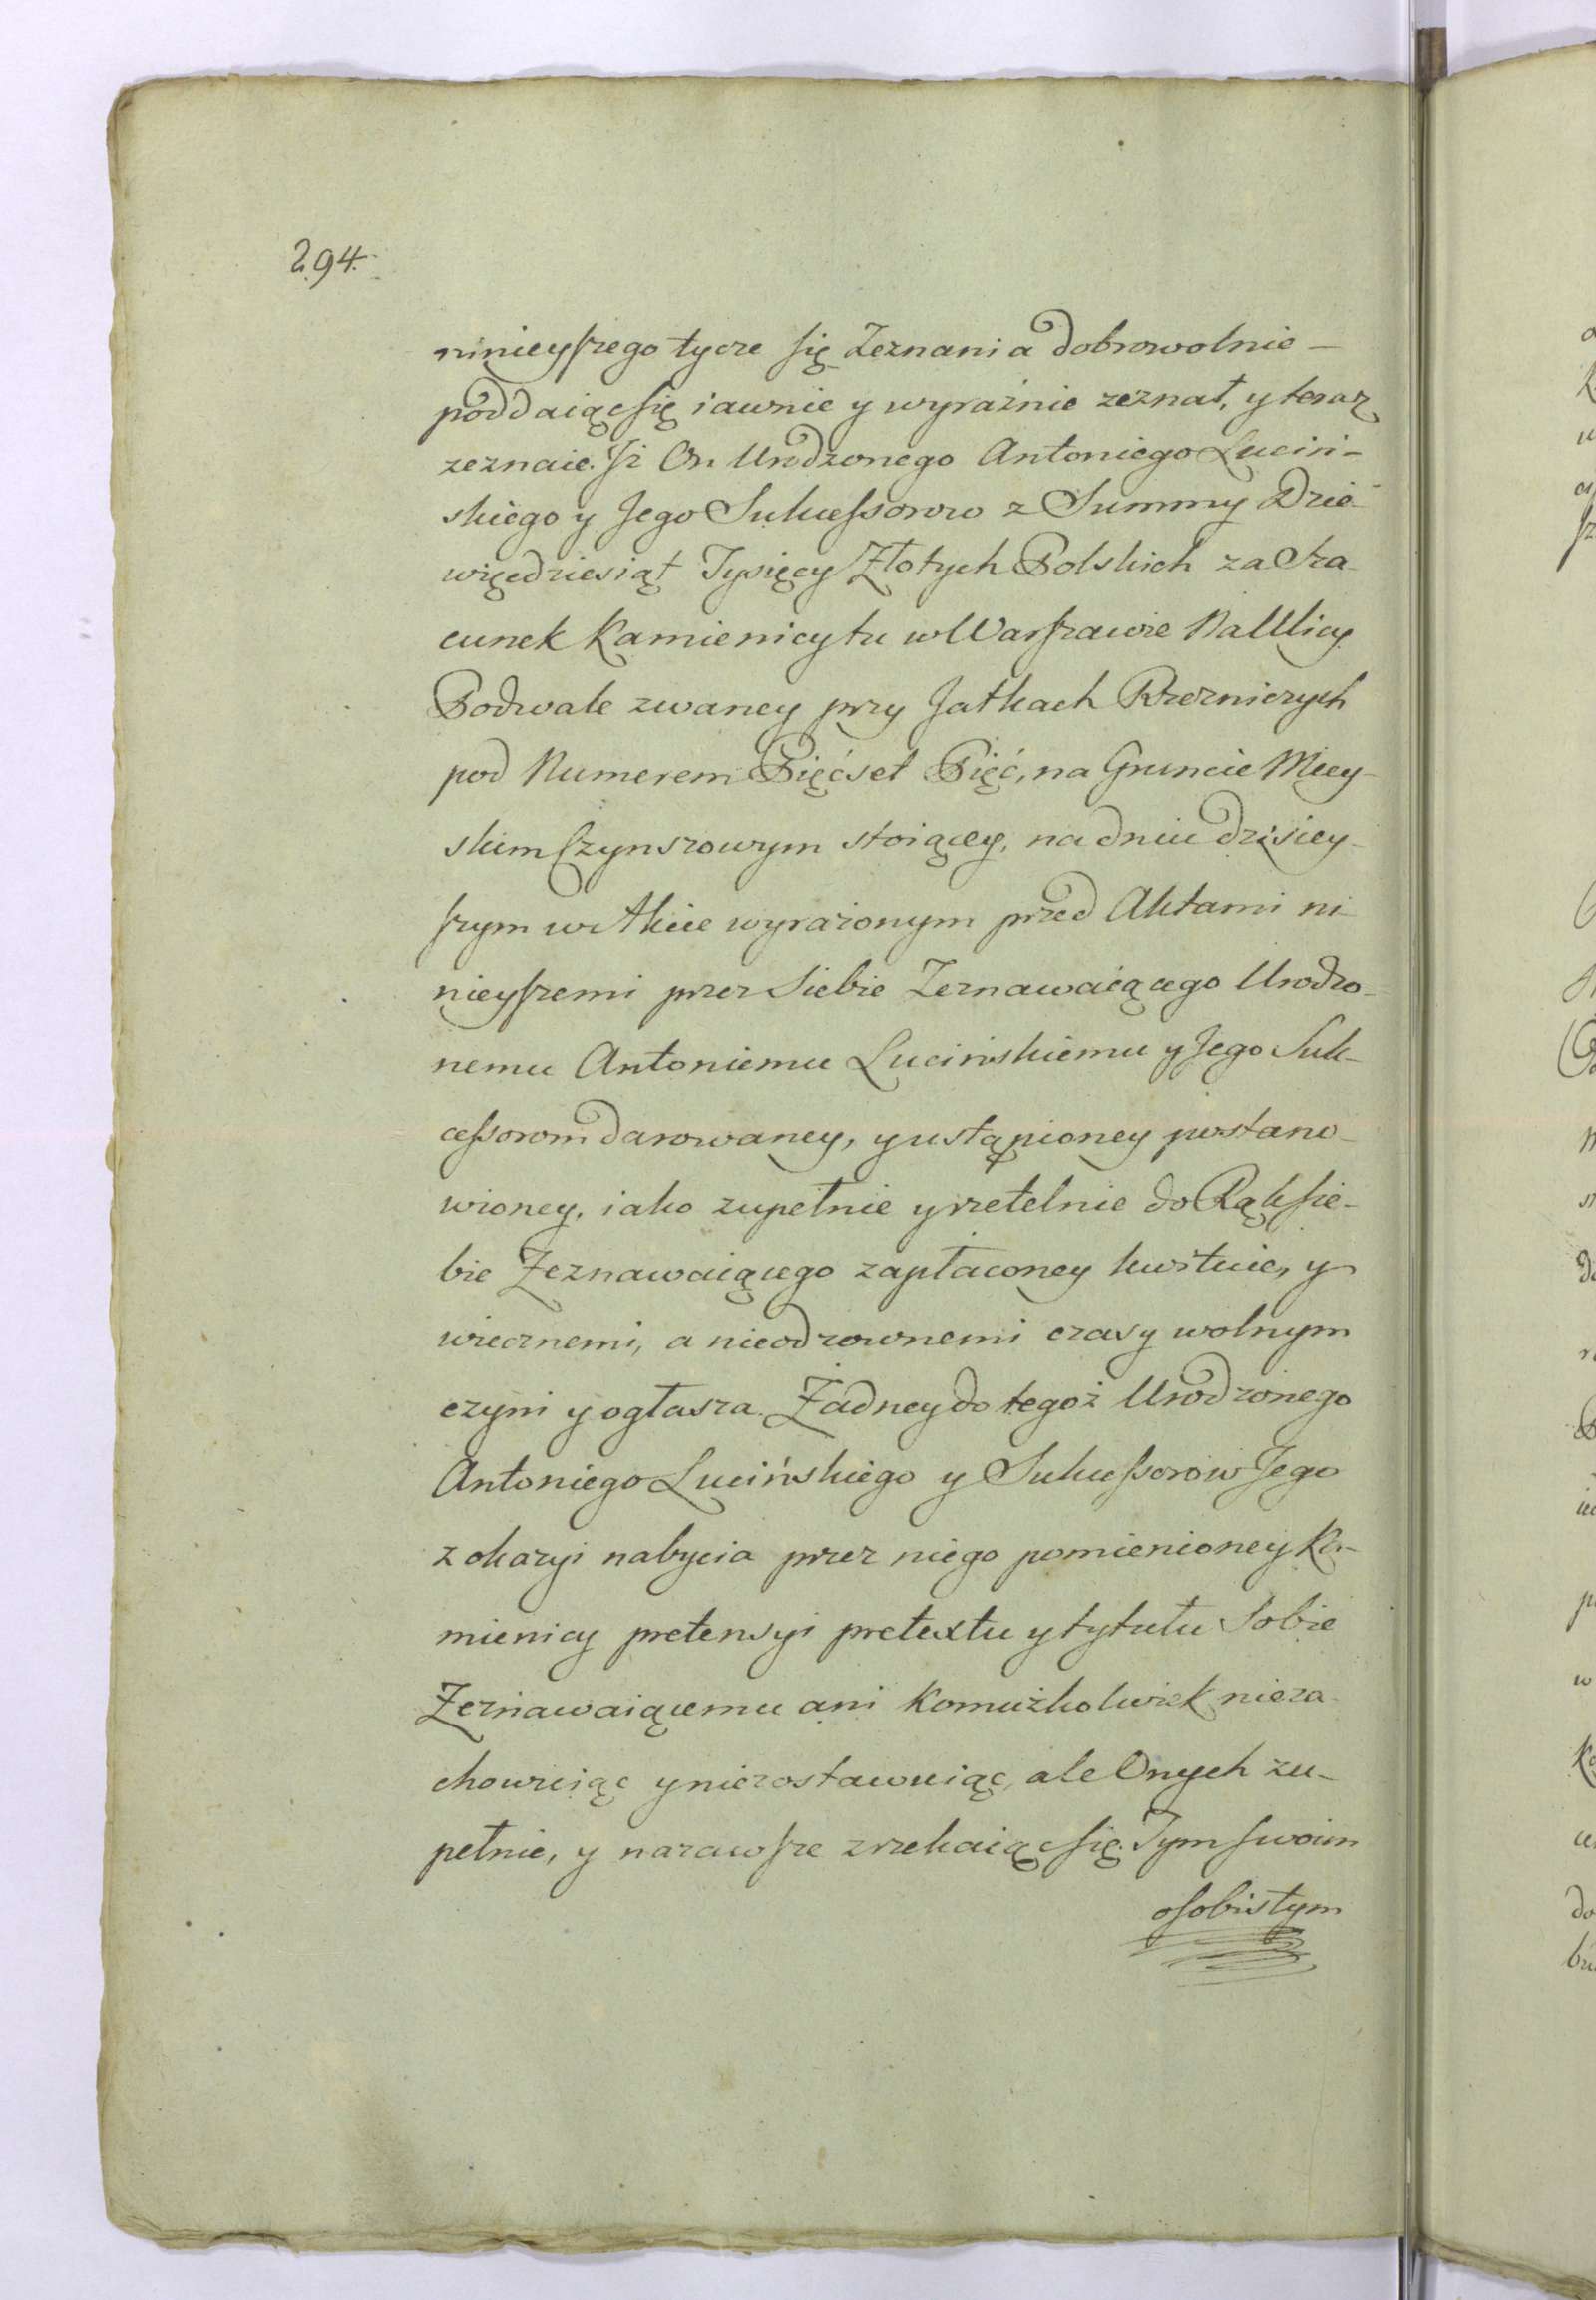 294.
ninieyszego tycze się Zeznania dobrowolnie —
poddaiąc się iawnie y wyraźnie zeznał, y teraz
zeznaie. Jż On Urodzonego Antoniego Luciń-
skiego y Jego Sukcessorow z Summy Dzie-
więćdziesiąt Tysięcy Złotych Polskich za Sza-
cunek Kamienicy tu w Warszawie Na Ulicy
Podwale zwaney przy Jatkach Rzezniczych
pod Numerem Pięćset Pięć, na Gruncie Miey-
skim Czynszowym stoiącey, na dniu dzisiey-
szym w Akcie wyrażonym przed Aktami ni-
nieyszemi przez Siebie Zeznawaiącego Urodzo-
nemu Antoniemu Lucińskiemu y Jego Suk-
cessorom darowaney, y ustąpioney postano-
wioney, iako zupełnie y rzetelnie do Rąk sie-
bie Zeznawaiącego zapłaconey kwituie, y
wiecznemi, a nieodzownemi czasy wolnym
czyni y ogłasza. Żadney do tegoż Urodzonego
Antoniego Lucińskiego y Sukcessorow Jego
z okazyi nabycia przez niego pomienioney Ka-
mienicy pretensyi pretextu y tytułu Sobie
Zeznawaiącemu ani Komużkolwiek nieza-
chowuiąc y niezostawuiąc, ale Onych zu-
pełnie, y nazawsze zrzekaiąc się. Tym swoim
osobistym